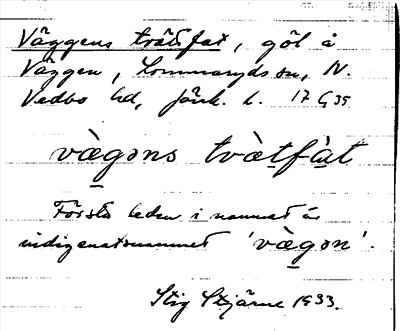 Väggens tvättfat, göl å
Väggen, Lommaryds sn, N.
Vedbo hd, Jönk. l. 17 G 35
vàgəns tvàtfàt
Första leden i namnet är
indigenatsnamnet 'vàgən'.
Stig Stjärne 1933.